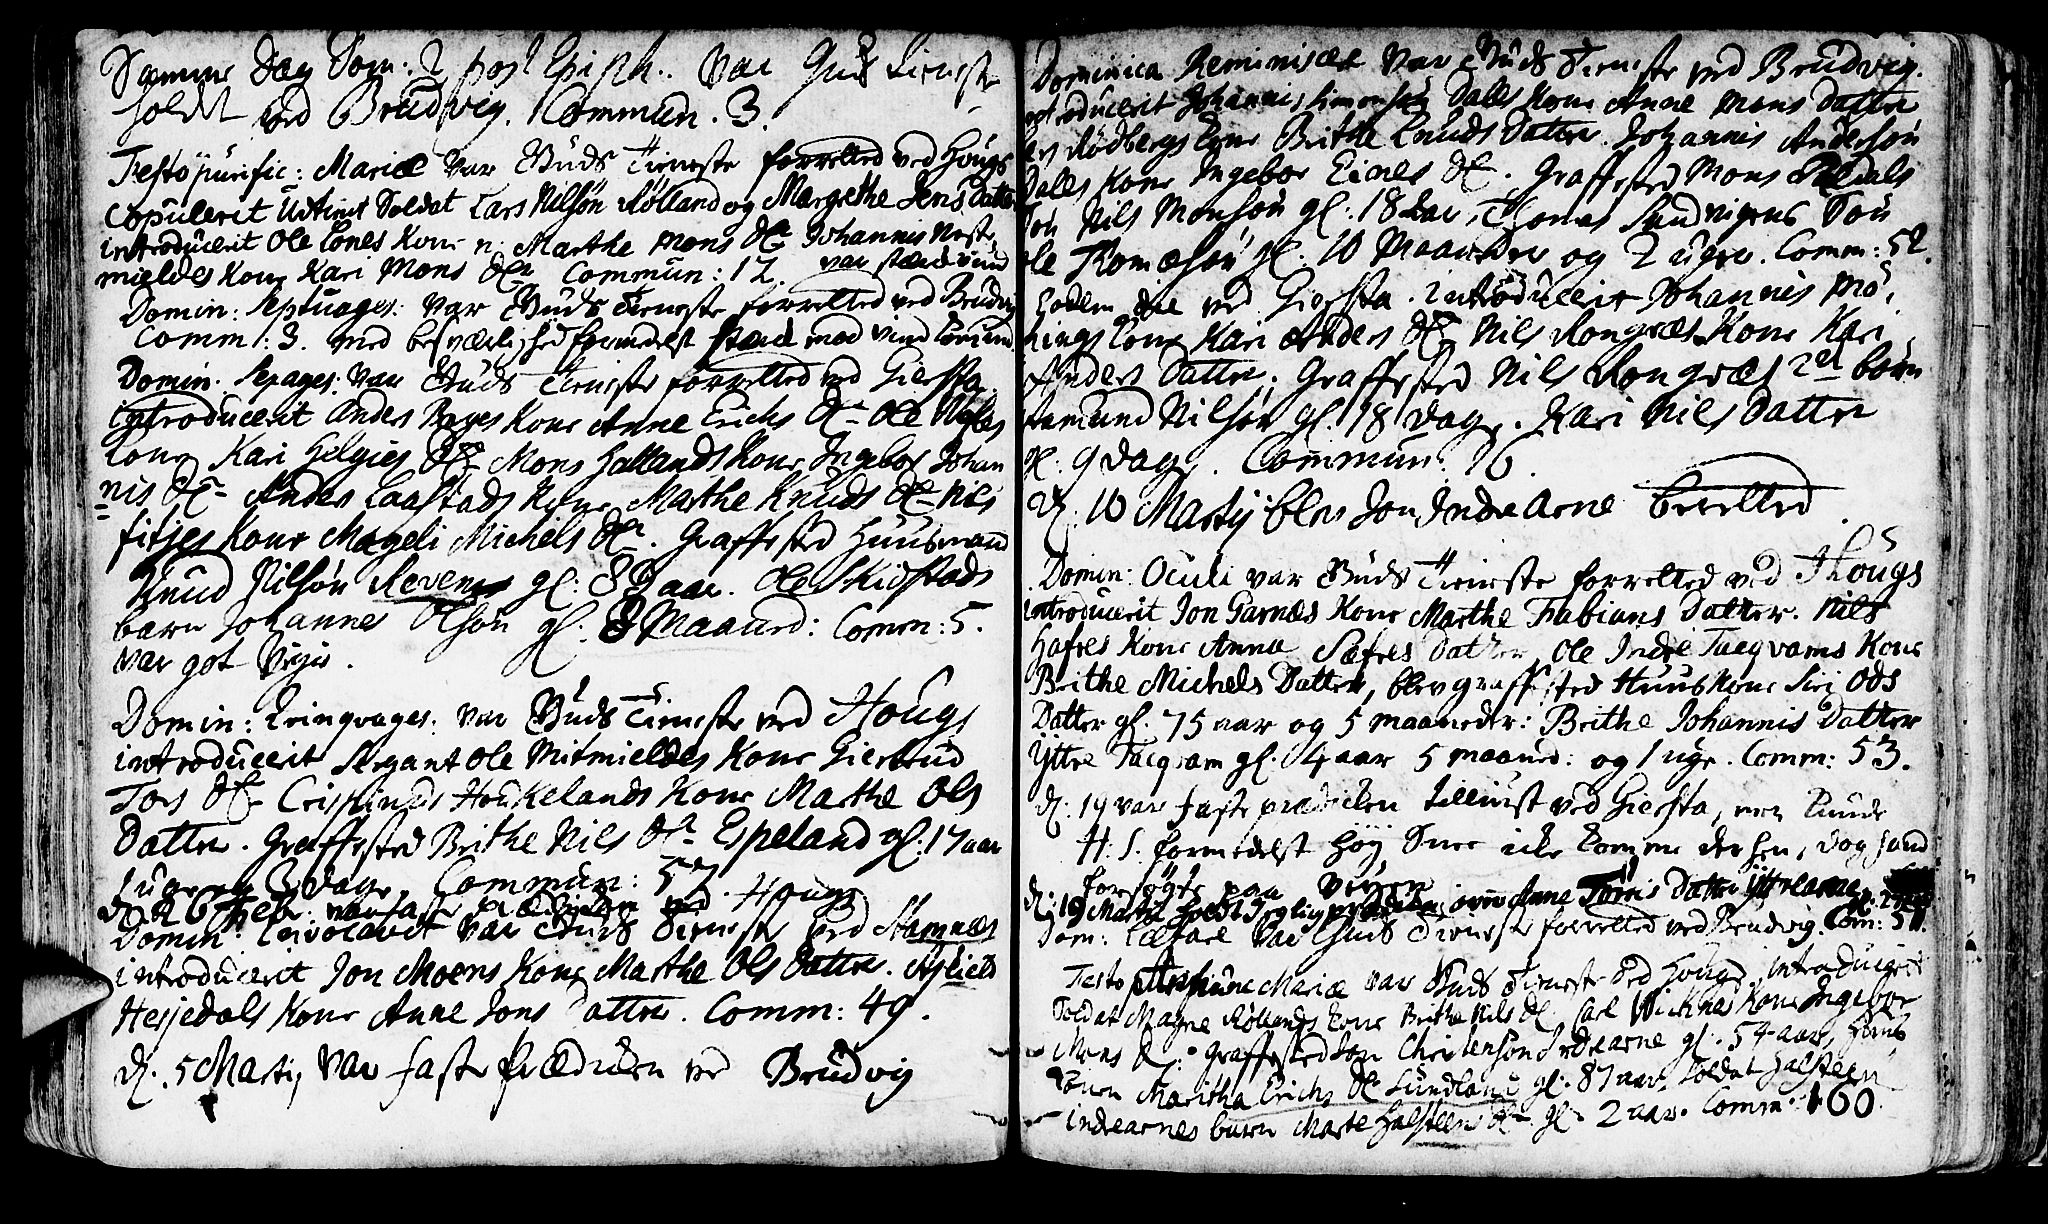 Samme Dag Dom: 2 post Epiph: var Guds tieneste
holdt ved Brudvig. Commun. 3.
Festo purific: Mariæ var Guds Tieneste forretted ved Hougs
copulerit Udtient Soldat Lars Nilsøn Rølland og Margrethe Jens Datter
introducerit Ole Lones Kone n: Marthe Mons Dr Johannis
mieldes Kone Kari Mons Dr Commun: 12
Domin: Septuages: var Guds Tieneste forretted ved Brudvig
Comm: 3. med besværlighed formedelst
Domin. Sexages: var Guds Tieneste forretted ved Giersta
introducerit Anders Kone Anne Erichs Dr Ole
Kone Kari Helgies Dr Mons Hallands Kone Ingebor Johan
nis Dr Anders Kone Marthe Knuds Dr Nils
fitjes Kone Mageli Michels Dr. Graffested Huusmand
Knud Nilsøn gl: aar. Ole Skidstads
barn Johannes Olsøn gl: 8 Maaned: Comm: 5.
var got Veyr.
Domin: Qvinqvages: var Guds Tieneste ved Hougs
introducerit Sergant Ole Mitmieldes Kone Giertrud
Tors Dr Crispinus Houkelands Kone Marthe Ols
Datter. Graffested Brithe Nils Dr Espeland gl: 17 aar
uger og 3 dage. Commun: 57
d. 26 Febr: var faste prædiken ved Hougs
Domin: Invocavit var Guds Tieneste ved Hamnæs
introducerit Jon Moens Kone Marthe Ols Datter. Aslieds
Hesjedals Kone Anne Jons Datter. Comm: 49.
d. 5 Martij var faste prædiken ved Brudvig
Dominica Reminiscere var Guds Tieneste ved Brudvig.
introducerit Johannis Simonsøn Dalls Kone Anne Mons Datter
Rødbergs Kone Brithe Knuds Datter. Johannis Andersøn
Dalls Kone Ingebor Einers Dr. Graffested Mons
Søn Nils Monsøn gl: 18 aar, Thomes Sandvigens Søn
Ole Thomæsøn gl: 10 Maaneder og 2 uger. Comm: 52.
ved Giersta. introducerit Johannis Mø
Kone Kari Anders Dr Nils Rongves Kone Kari
Anders Datter. Graffested Nils Rongves 2de børn
Amund Nilsøn gl: 18 dage. Kari Nils Datter
gl: 9 dage. Commun: 16.
d. 10 Martij blev Jon Indre Arne berettet.
Domin: Oculi var Guds Tieneste forrettet ved Hougs
introducerit Jon Garnæs Kone Marthe Fabians Datter. Nils
Hafres Kone Anna Datter, Ole Indre Tacqvams Kone
Brithe Michels Datter, blev graffested Huuskone Siri Ods
Datter gl: 75 aar og 5 maaneder: Brithe Johannis Datter
Yttre Tacqvam gl: 4 aar 5 maaned: og 1 uge. Comm: 53.
d. 19 var faste prædiken tilliust ved Giersta, men kunde
H: S: formedelst høy Snee icke komme derhen, dog hand
forsøgte paa Veyen
d. 19 Martij holdt over Anne Datter Yttrearne
Dom: Lætare var Guds Tieneste forrettet ved Brudvig. Com: 51.
Festo Mariæ var Guds Tieneste ved Hougs, introducerit
Soldat Magne Røllands Kone Brithe Nils Dr. Carl Kone Ingebor
Mons Dr. Graffested Jon Christensøn Indrearne gl: 54 aar, Huus
Konen Maritha Erichs Dr Lundland gl: 87 aar, Soldat Halsteen
indrearnes barn Marte Halsteens Dr gl: 2 aar. Comm: 160.